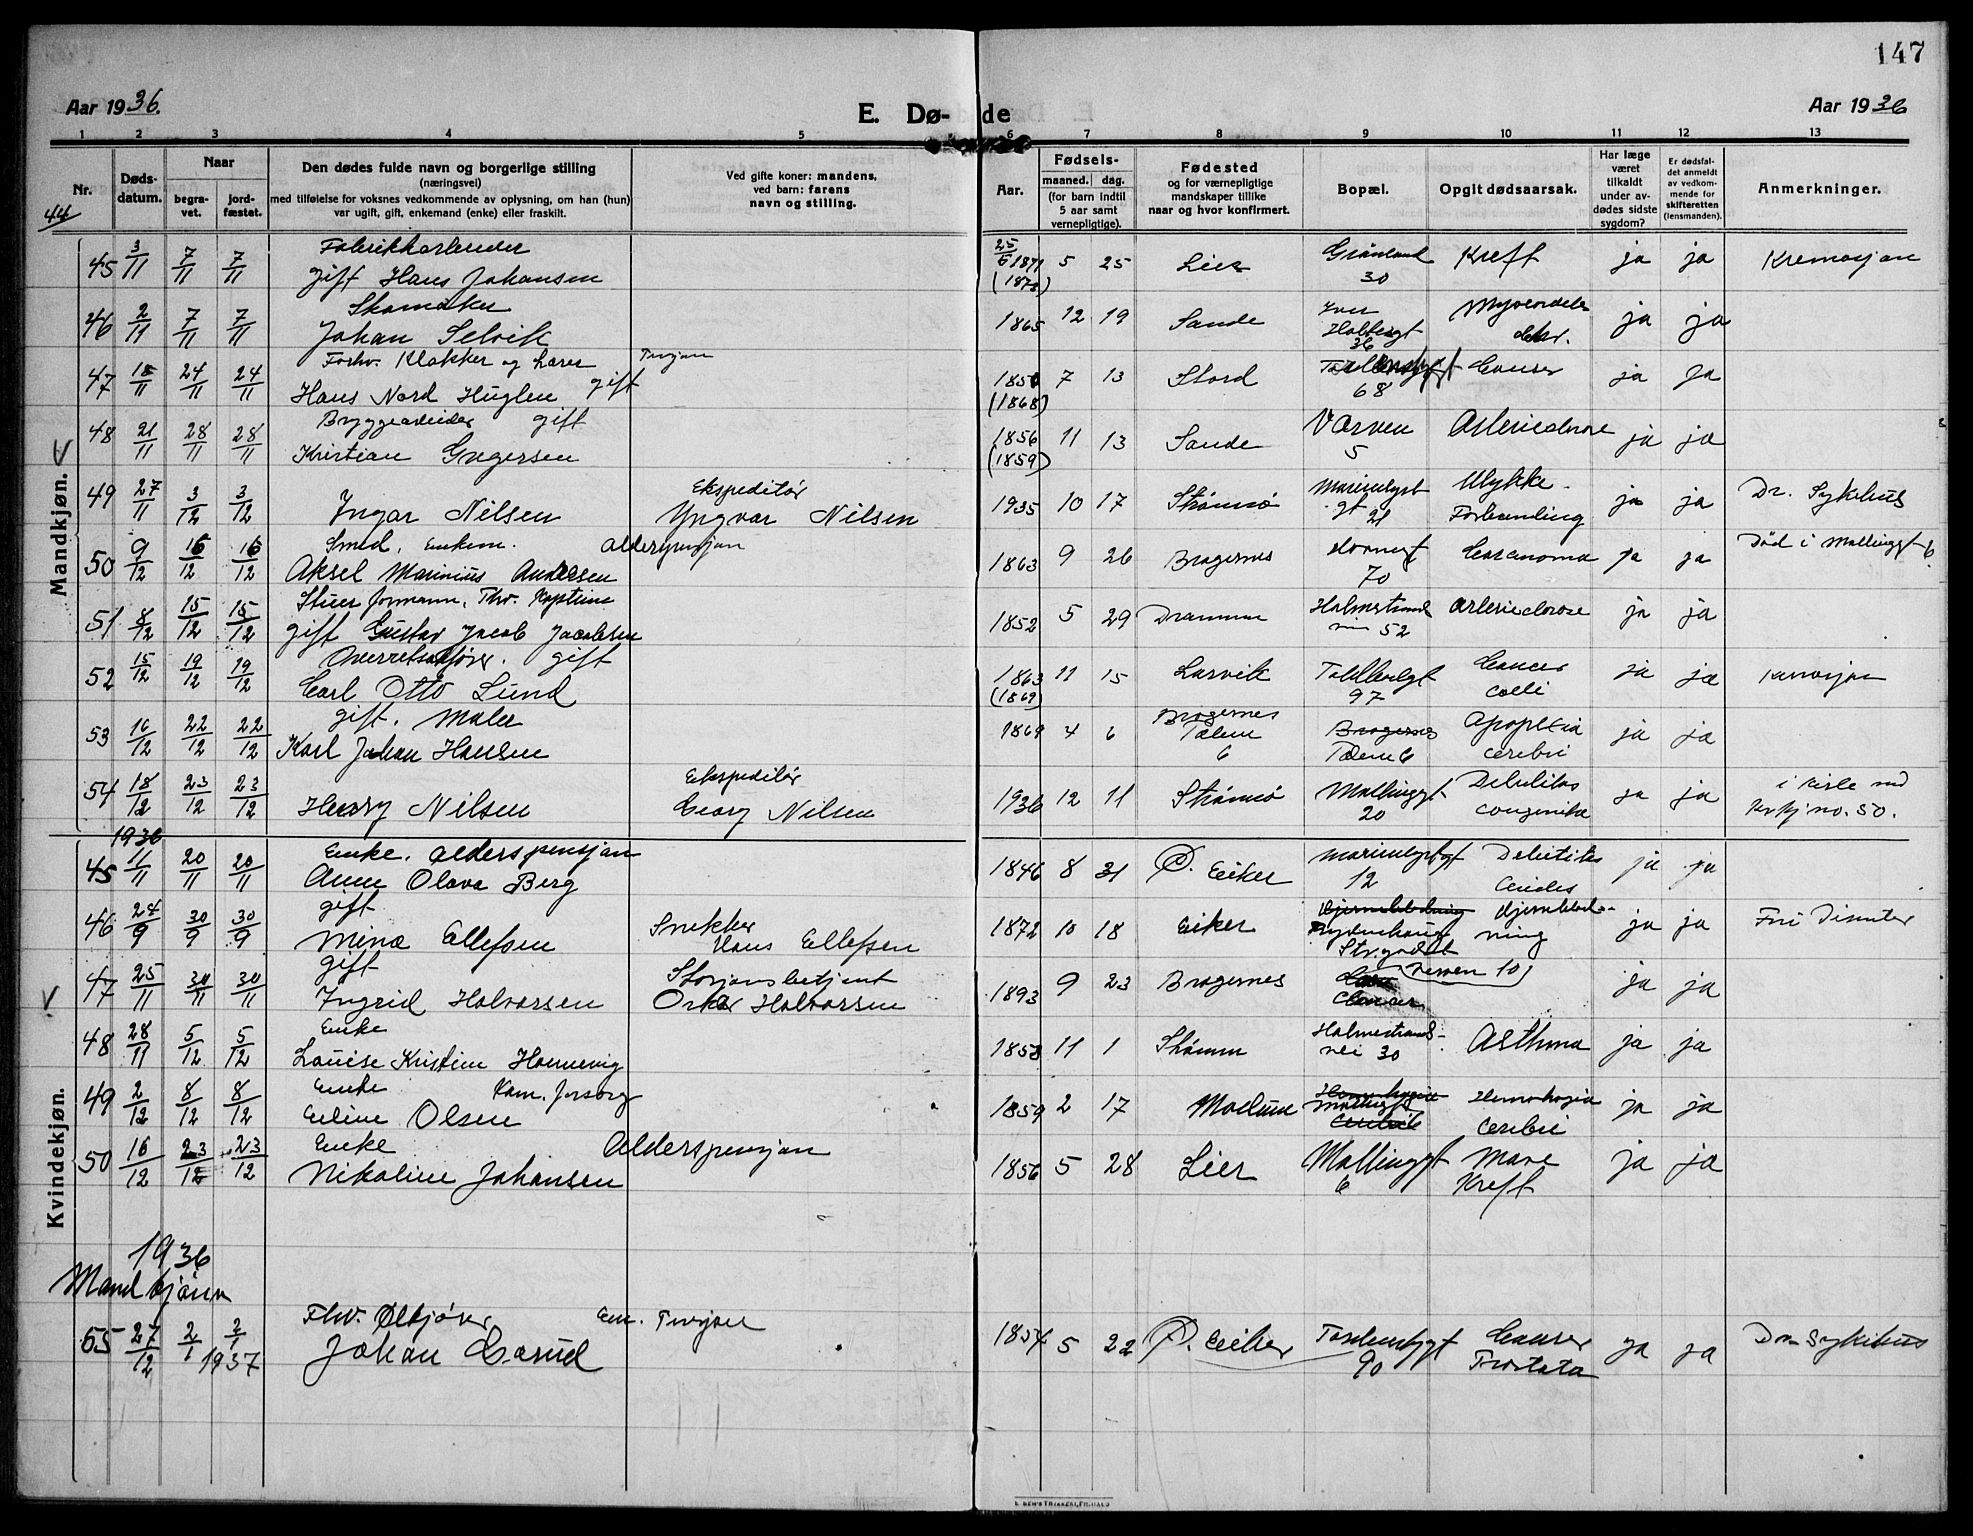 147
Aar 1936. E. Dø- de Aar 1936
1 2 3 4 5 6 7 8 9 10 11 12 13
Nr. Døds-datum. Naar begra-vet. jord-fæstet. Den dødes fulde navn og borgerlige stilling (næringsvei) med tilføielse for voksnes vedkommende av oplysning, om han (hun) var ugift, gift, enkemand (enke) eller fraskilt. Ved gifte koner: mandens, ved barn: farens navn og stilling. Aar. Fødsels- maaned. dag. (for barn indtil 5 aar samt vernepligtige). Fødested og for værnepligtige mandskaper tillike naar og hvor konfirmert. Bopæl. Opgit dødsaarsak. Har læge været tilkaldt under av-dødes sidste sygdom? Er dødsfal-det anmeldt av vedkom-mende for skifteretten (lensmanden). Anmerkninger.
44
Mandkjøn.
Fabrikkarbeider 25/5 Grønland
45 3/11 7/11 7/11 gift Hans Johansen 1871 5 25 Lier 30 Kreft ja ja Kremasjon
(1872)
Skomaker Iver
46 2/11 7/11 7/11 Johan Selvik 1865 12 19 Sande Holtergt 36 ja ja
Forhv. Klokker og Lærer
47 18/11 24/11 24/11 Hans Nord Huglen gift 1850 7 13 Stord 68 Cancer ja ja
(1868)
Bryggearbeider gift
48 21/11 28/11 28/11 Kristian 1856 11 13 Sande Værven 5 ja ja
(1859)
Ekspeditør
49 27/11 3/12 3/12 Ingar Nilsen Yngvar Nilsen 1935 10 17 Strømsø 21 Ulykke Forbrending ja ja Dr. Sykehus
Smed, enkem. Alderspensjon
50 9/12 16/12 16/12 Aksel Marinius Andresen 1863 9 26 Bragernes 70 Carcinoma ja ja Død i Mallinggt 6
51 8/12 15/12 15/12 gift Gustav Jacob Jacobsen 1852 5 29 Drammen Holmestrand 52 ja ja
Overretssakfører. gift
52 15/12 19/12 19/12 Carl Otto Lund 1863 11 15 Larvik 97 Cancer coli ja ja
(1869)
gift. Maler Bragernes
53 16/12 22/12 22/12 Karl Johan Hansen 1869 4 6 6 Bragernes 6 Apoplexia cerebri ja ja
Ekspeditør
54 18/12 23/12 23/12 Henry Nilsen Georg Nilsen 1936 12 11 Strømsø Mallinggt 20 Debilitas congenita ja ja i kiste med no. 50.
1936
Kvindekjøn.
Enke. Alderspensjon
45 11/11 20/11 20/11 Anne Olava Berg 1846 8 31 Ø. Eiker 12 ja ja
gift
46 24/9 30/9 30/9 Mina Ellefsen Snekker Hans Ellefsen 1872 10 18 Eiker Hjerneblød-ning ja ja
gift
47 25/11 30/11 30/11 Ingrid Halvorsen Stasjonsbetjent Oskar Halvorsen 1893 9 23 Bragernes 10 Cancer ja ja
Enke
48 28/11 5/12 5/12 Louise Kristine 1853 11 1 Holmestrands-vei 30 Asthma ja ja
Enke Kom. forsorg
49 2/12 8/12 8/12 Eline Olsen 1859 2 17 Modum cerebri ja ja
Enke Alderspensjon
50 16/12 23/12 23/12 Nikoline Johansen 1856 5 28 Lier Mallinggt 6 Mave Kreft ja ja
1936
Mandkjønn
Fhv. Ølkjører Em.
55 27/12 2/1 2/1 1937 Johan 1854 5 22 Ø. Eiker 90 Cancer Prostata ja ja Dr. Sykehus